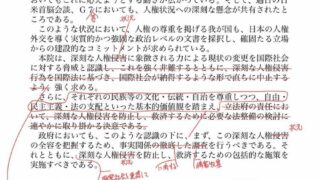 米首脳会談、G7においても、人権状況への深刻な懸念が共有されたと
ころである。
このような状況において、人権の尊重を掲げる我が国も、日本の人権
外交を導く実質的かつ強固な政治レベルの文書を採択し、確固たる立場
からの建設的なコミットメントが求められている。
本院は、深刻な人権侵害に象徴される力による現状の変更を国際社会に
対する脅威と認識し、これを強く非難するとともに、深刻な人権侵害
行為を国際法に基づき、国際社会が納得するような形で直ちに中止する
よう、強く求める。
さらに、それぞれの民族等の文化・伝統・自治を尊重しつつ、自由・
民主主義・法の支配といった基本的価値観を踏まえ、立法府の責任にお
いて、深刻な人権侵害を防止し、救済するために必要な法整備の検討に
速やかに取り掛かる決意である。
政府においても、このような認識の下に、まず、この深刻な人権侵害
の全容を把握するため、事実関係の徹底した調査を行うべきである。そ
れとともに、深刻な人権侵害を防止し、救済するための包括的な施策を
実施すべきである。
状況
状況